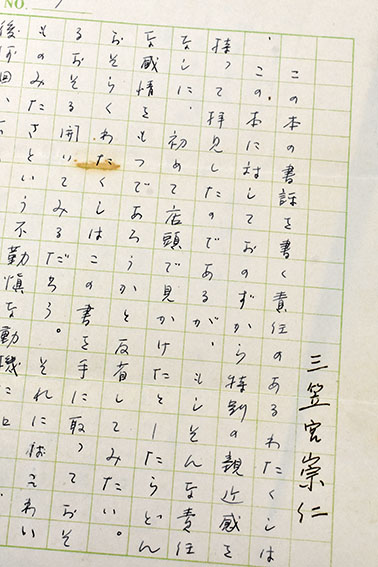 NO.
三笠宮崇仁
この本の書評を書く責任のあるわたくしは
、この本に対しておのずから特別の親近感を
持って拝見したのであるが、もしそんな責任
なしに、初めて店頭で見かけたとしたらどん
な感情をもつであろうかと反省してみたい。
おそらくわたくしはこの書を手に取っておそ
るおそる開いてみるだろう。それにはこわい
ものみたさという不勤慎な動機